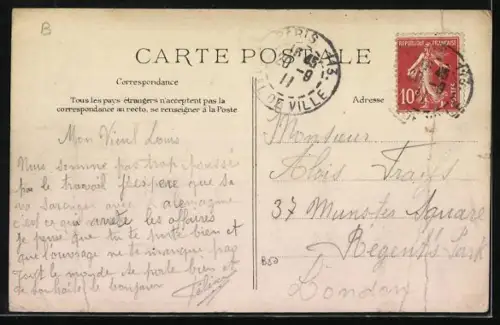 B
CARTE POSTALE
Correspondance
Tous les pays étrangers n'acceptent pas la
correspondance au recto, se renseigner à la Poste
Adresse
PARIS
11
DE VILLE
REPUBLIQUE FRANÇAISE
10
Mon Vieux Louis
Nous somme pas trop pressé
par le travail j'espere que sa
va saranger avec
c'est ce qui arrete les affaires
je pense que tu te porte bien et
que l'ouvrage ne te manque pas
tout le monde se porte bien et
te souhaite le bonjour
Monsieur
Alois
37 Munster Square
Regent's Park
London
B50